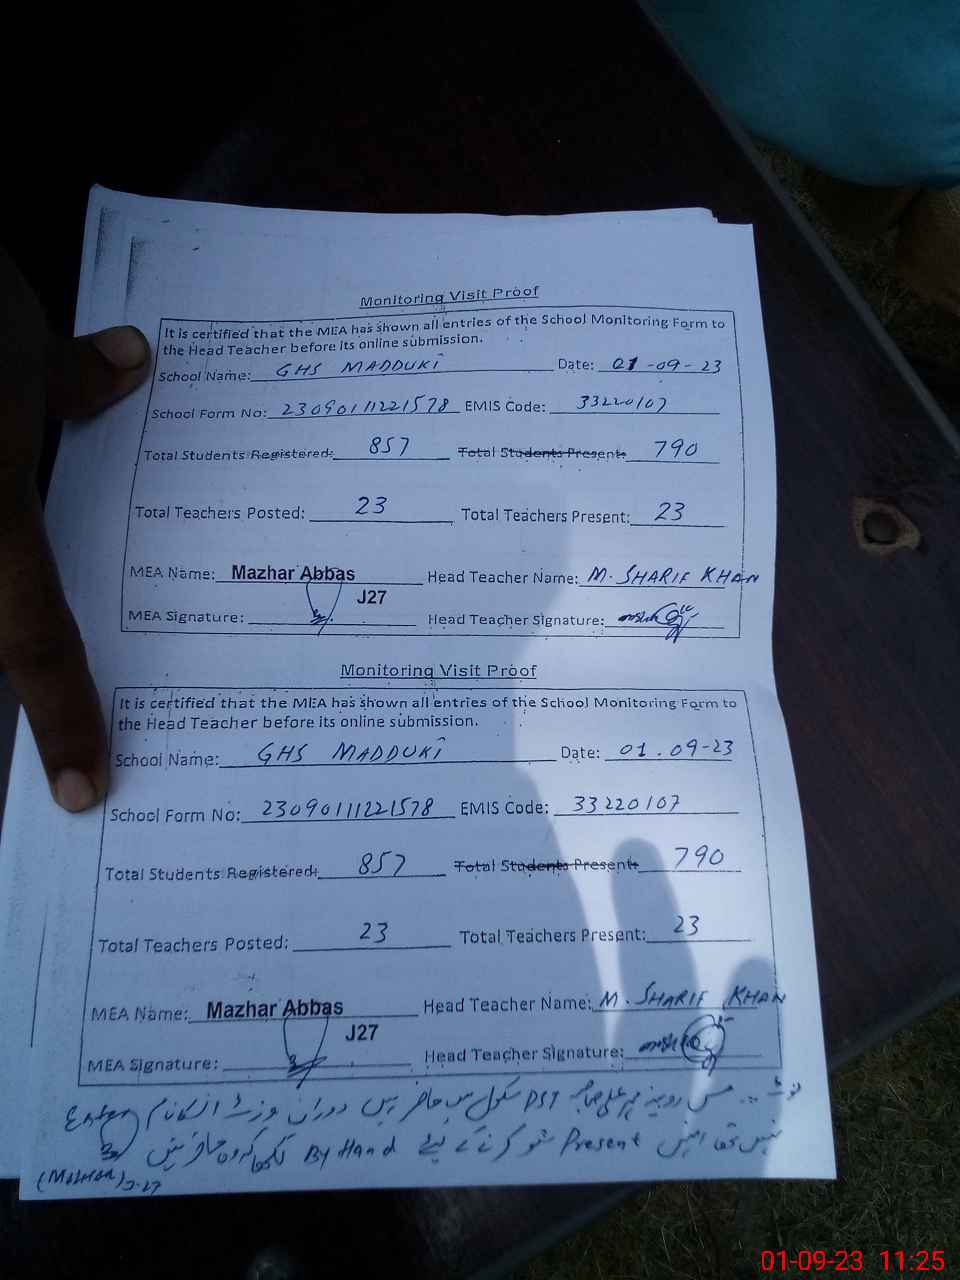 Monitoring Visit Proof
It is certified that the MEA has shown all entries of the School Monitoring Form to
the Head Teacher before its online submission.
School Name: GHS MADDUKI Date: 01-09-23
School Form No: 23090111221578 EMIS Code: 33220107
Total Students Registered: 857 Total Students Present: 790
Total Teachers Posted: 23 Total Teachers Present: 23
MEA Name: Mazhar Abbas Head Teacher Name: M. SHARIF KHAN
J27
MEA Signature: Head Teacher Signature:
Monitoring Visit Proof
It is certified that the MEA has shown all entries of the School Monitoring Form to
the Head Teacher before its online submission.
School Name: GHS MADDUKI Date: 01.09-23
School Form No: 23090111221578 EMIS Code: 33220107
Total Students Registered: 857 Total Students Present: 790
Total Teachers Posted: 23 Total Teachers Present: 23
MEA Name: Mazhar Abbas Head Teacher Name: M. SHARIF KHAN
J27
MEA Signature: Head Teacher Signature:
نوٹ مس DST سکول میں حاضر ہیں دوران وزٹ انکا نام Enter
نہیں تھا انہیں Present شو کرنے کے لیے By Hand
(Mazhar) J-27
01-09-23 11:25